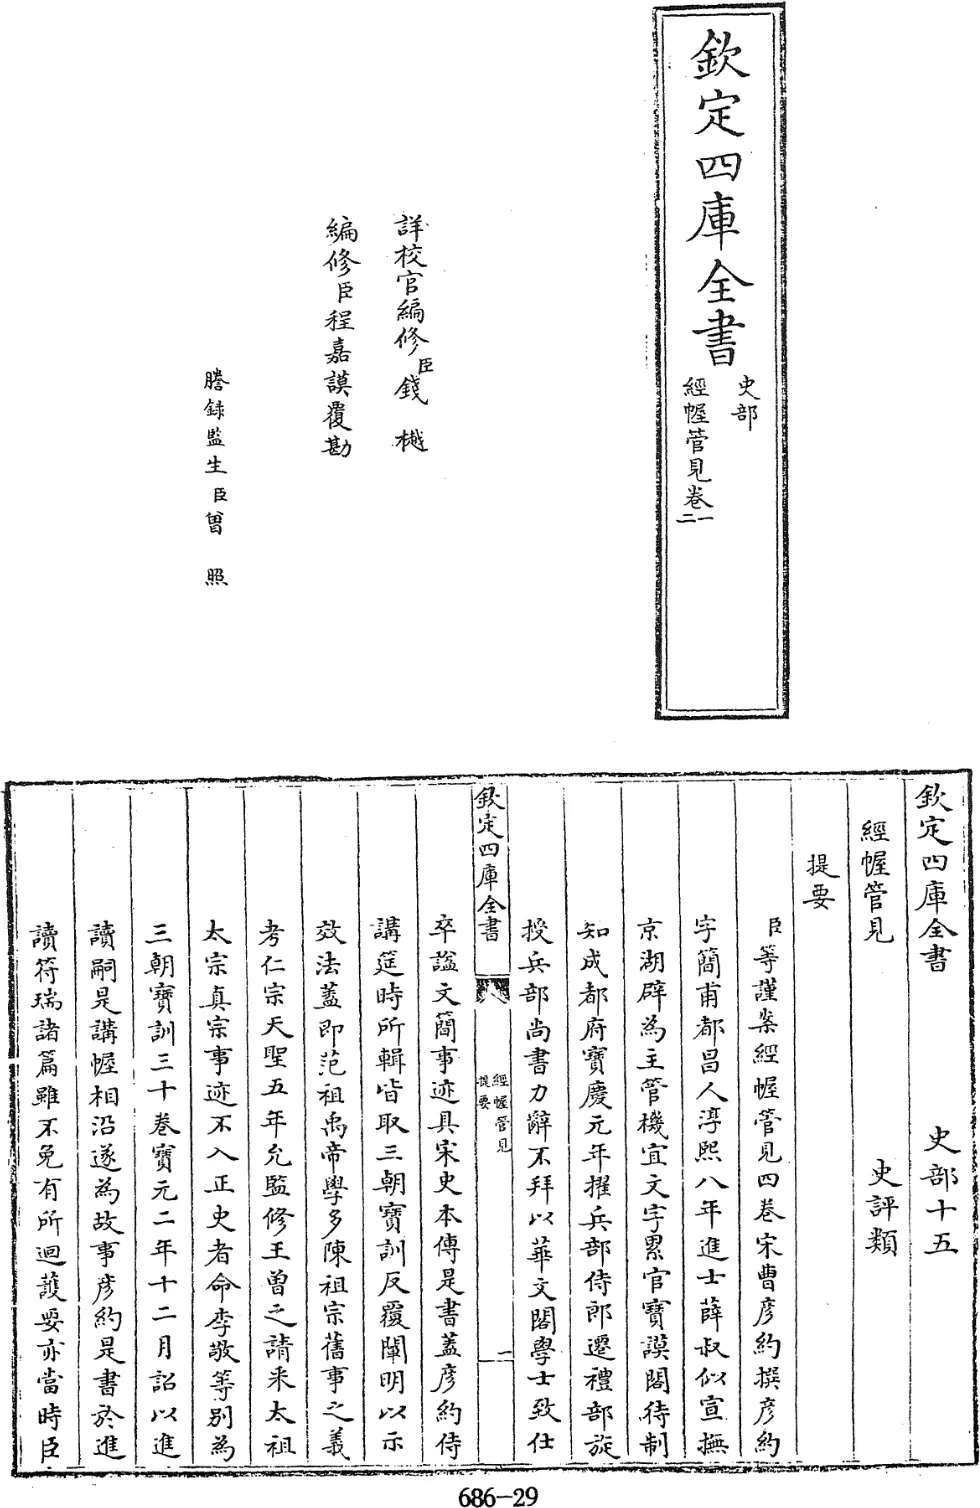 欽定四庫全書
史部
經幄管見卷一
二
詳校官編修臣錢樾
編修臣程嘉謨覆勘
謄錄監生臣曾照
欽定四庫全書 史部十五
經幄管見 史評類
提要
臣等謹案經幄管見四卷宋曹彦約撰彦約
字簡甫都昌人淳熙八年進士薛叔似宣撫
京湖辟為主管機宜文字累官寶謨閣待制
知成都府寶慶元年擢兵部侍郎遷禮部旋
授兵部尚書力辭不拜以華文閣學士致仕
欽定四庫全書
經幄管見
提要
一
卒諡文簡事迹具宋史本傳是書葢彦約侍
講筵時所輯皆取三朝寶訓反覆闡明以示
效法葢即范祖禹帝學多陳祖宗舊事之義
考仁宗天聖五年允監修王曾之請采太祖
太宗真宗事迹不入正史者命李敬等别為
三朝寶訓三十卷寶元二年十二月詔以進
讀嗣是講幄相沿遂為故事彦約是書於進
讀符瑞諸篇雖不免有所迴護要亦當時臣
686-29